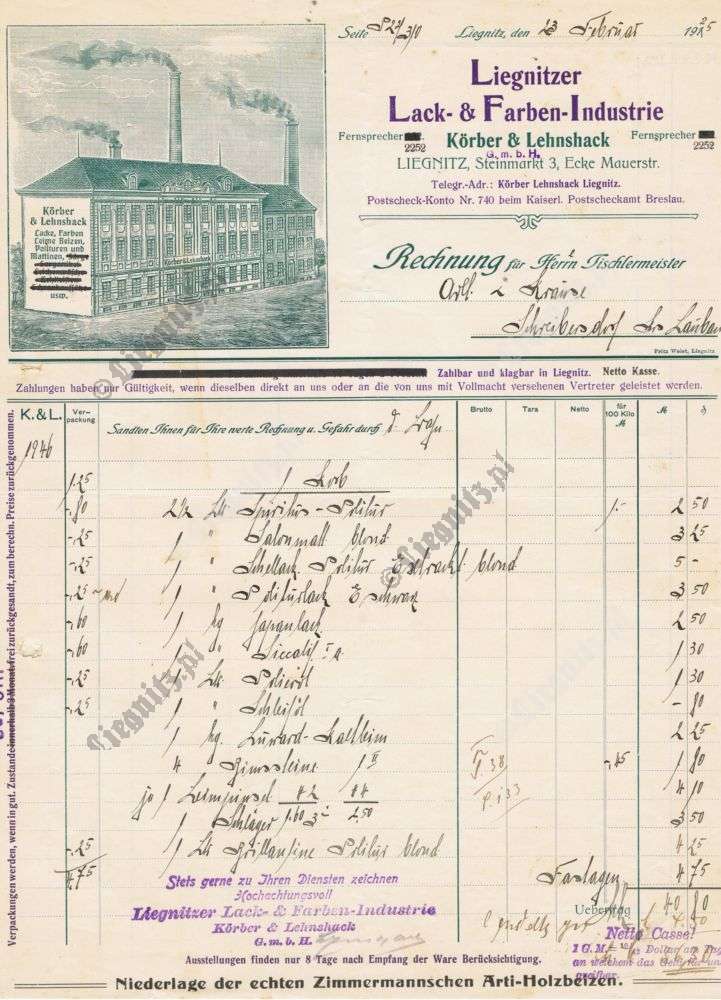 Seite S 27/310 Liegnitz, den 23 Februar 1925
Liegnitzer
Lack- & Farben-Industrie
Fernsprecher 2252 Körber & Lehnshack Fernsprecher 2252
G. m. b. H.
LIEGNITZ, Steinmarkt 3, Ecke Mauerstr.
Telegr.-Adr.: Körber Lehnshack Liegnitz.
Postscheck-Konto Nr. 740 beim Kaiserl. Postscheckamt Breslau.
Körber
& Lehnshack
Lacke, Farben
Leime Beizen,
Polituren und
Mattinen,
usw.
Körber & Lehnshack
Rechnung für Herrn Tischlermeister
Krause
Schreibersdorf Krs Lauban
Fritz Weist, Liegnitz
Zahlbar und klagbar in Liegnitz. Netto Kasse.
Zahlungen haben nur Gültigkeit, wenn dieselben direkt an uns oder an die von uns mit Vollmacht versehenen Vertreter geleistet werden.
K. & L. Ver-packung Sandten Ihnen für Ihre werte Rechnung u. Gefahr durch Brutto Tara Netto für 100 Kilo M M ₰
1946
1.25 1 Korb
-.80 2 1/2 Ltr Spiritus-Politur 1.- 2 50
-.25 1 " Salonmatt blond 3 25
-.25 1 " Schellack Politur Extrackt blond 5 -
-.25 1 " Politurlack schwarz 3 50
-.60 1 kg Japanlack 2 50
-.60 1 " Siccatif Ia 1 30
-.25 1 Ltr Polieröl 1 30
-.25 1 " Schleiföl - 80
1 kg Kaltleim 2 25
4 Bimssteine II -.45 1 80
je 1 Leimpinsel 42 44 4 10
1 Schläger 1.60 2.50 3 50
-.25 1 Ltr Brillantine Politur blond 4 25
4.75 Fastagen 4 75
Uebertrag 40 80
Stets gerne zu Ihren Diensten zeichnen
Hochachtungsvoll
Liegnitzer Lack- & Farben-Industrie
Körber & Lehnshack
G. m. b. H.
Netto Casse!
1 G. M. = 10/42 Dollar am Tag
an welchem das Geld für uns
greifbar.
Ausstellungen finden nur 8 Tage nach Empfang der Ware Berücksichtigung.
Niederlage der echten Zimmermannschen Arti-Holzbeizen.
Verpackungen werden, wenn in gut. Zustande innerhalb 3 Monat frei zurückgesandt, zum berechn. Preise zurückgenommen.
©Liegnitz.pl
©Liegnitz.pl
Liegnitz.pl